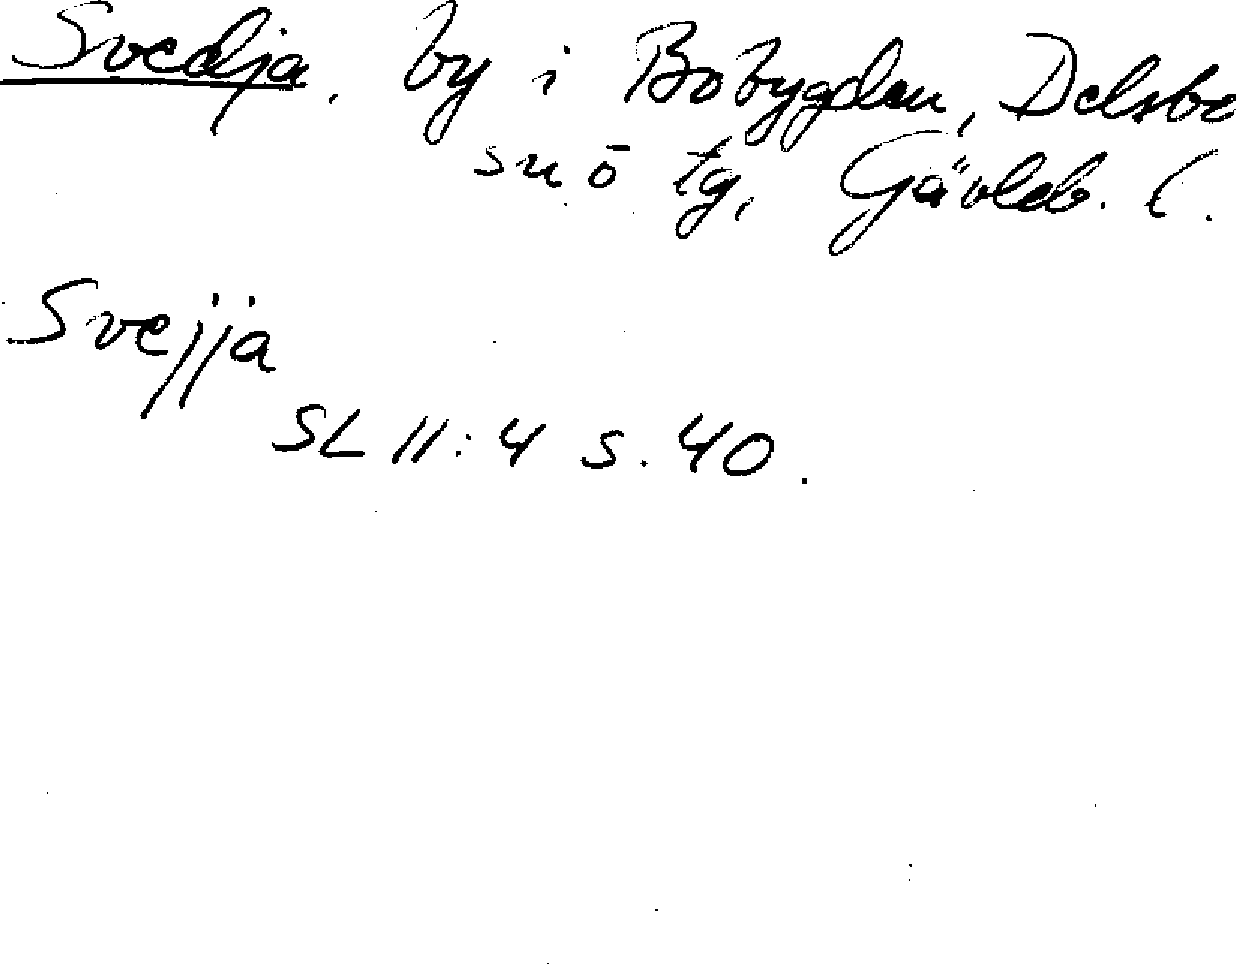 Svedja, by i Bobygden, Delsbo
sn o tg, Gävleb. l.
Svejja
SL II:4 s. 40.